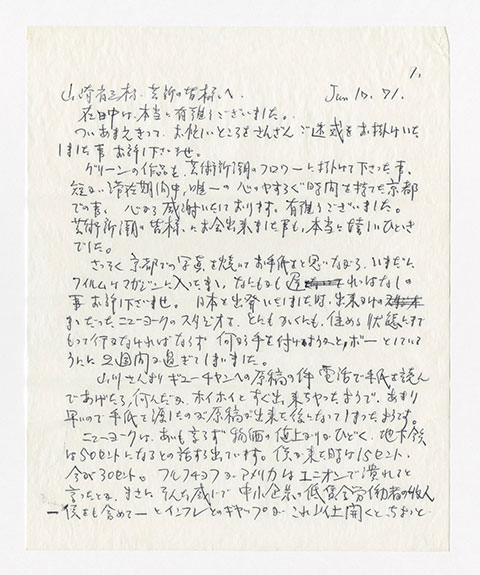 1.
山崎省三様、芸新の皆様へ、 Jun 10. 71.
在日中は、本当に有難うございました。
ついあまえきって、お忙しいところをさんざんご迷惑をお掛けいた
しました事お許し下さいませ。
グリーンの作品を、芸術新潮のフロワーに掛けて下さった事、
短かい滞在期間中、唯一の心のやすらぐ時間を持てた京都
での事、心から感謝いたしております。有難うございました。
芸術新潮の皆様にお会出来ました事も、本当に嬉しいひととき
でした。
さっそく京都での写真を焼いてお手紙をと思いながら、いまだに
フイルムはマガジンに入ったまゝ、なんともしまらない
事お許し下さいませ。日本を出発いたしました時、出来かけの
まゝだったニューヨークのスタジオを、とにもかくにも、住める状態にまで
もって行かなければならず 何から手を付けようかと、ボーとしている
うちに 2週間が過ぎてしまいました。
山川さんよりギューチャンへの原稿の件 電話で手紙を読ん
であげたら、何んだか、ホイホイとすぐ出来ちゃったようで、あまり
早いので手紙を渡したのが原稿が出来た後になってしまったようです。
ニューヨークは、あいも変らず 物価の値上がりがひどく、地下鉄
は50セントになるとの話も出ています。僕が来た時は15セント、
今が30セント。フルフチョフが アメリカは ユニオンで潰れると
言ったとか、まさに そんな感じで 中小企業の低賃金労働者の収入
―僕をも含めて―とインフレとのギャップが これ以上開くと ちょっと